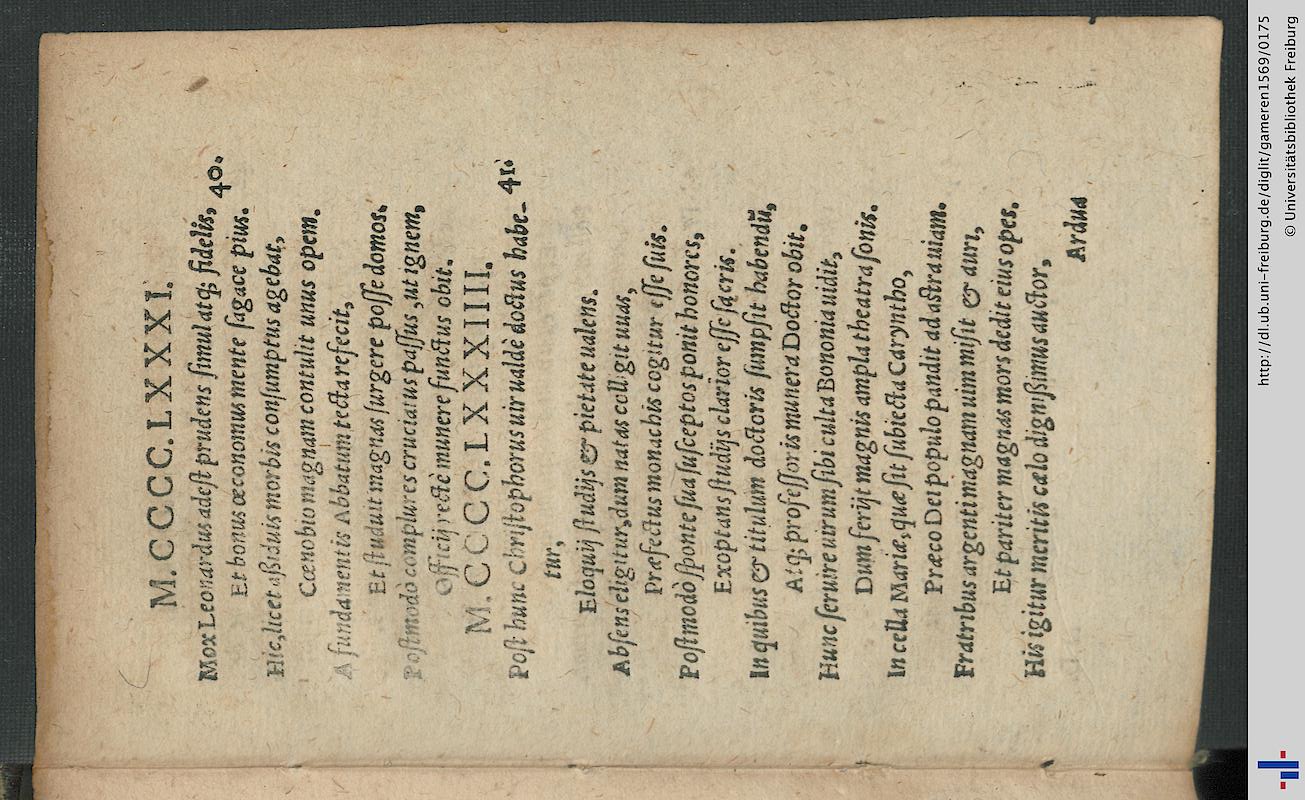 M. CCCC. LXXXI.
Mox Leonardus adeſt prudens ſimul atq; fidelis, 40.
Et bonus œconomus mente ſagace pius.
Hic, licet aßiduis morbis conſumptus agebat,
Cœnobio magnam contulit unus opem.
A fundamentis Abbatum tecta refecit,
Et ſtuduit magnas ſurgere poſſe domos.
Poſtmodò complures cruciatus paſſus, ut ignem,
Officij rectè munere functus obit.
M. CCCC. LXXXIIII.
Poſt hunc Chriſtophorus uir ualdè doctus habe- 41.
tur,
Eloquij ſtudijs & pietate ualens.
Abſens eligitur, dum natas colligit uuas,
Præfectus monachis cogitur eſſe ſuis.
Poſtmodò ſponte ſua ſuſceptos ponit honores,
Exoptans ſtudijs clarior eſſe ſacris.
In quibus & titulum doctoris ſumpſit habendū,
Atq; profeſſoris munera Doctor obit.
Hunc ſeruire uirum ſibi culta Bononia uidit,
Dum ferijt magnis ampla theatra ſonis.
In cella Mariæ, quæ ſit ſubiecta Caryntho,
Præco Dei populo pandit ad aſtra uiam.
Fratribus argenti magnam uim miſit & auri,
Et pariter magnas mors dedit eius opes.
His igitur meritis cælo dignißimus auctor,
Ardua
http://dl.ub.uni-freiburg.de/diglit/gameren1569/0175
© Universitätsbibliothek Freiburg